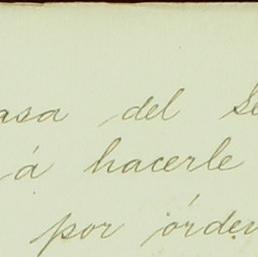 asa del Se
á hacerle
por órden